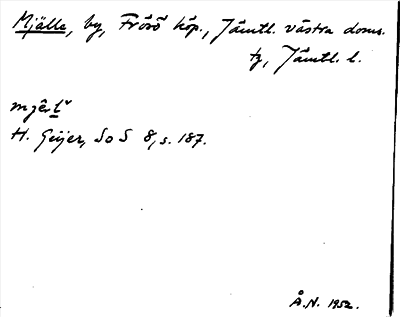 Mjälla, by, Frösö köp., Jämtl. västra doms.
tg, Jämtl. l.
H. Geijer, SoS 8, s. 187.
Å.N. 1952.